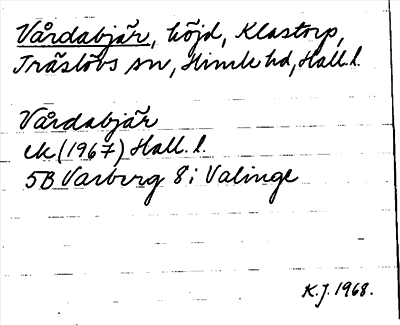 Vårdabjär, höjd, Klastorp,
Träslövs sn, Himle hd, Hall. l.
Vårdabjär
ek (1967) Hall. l.
5B Varberg 8 i Valinge
K.J. 1968.